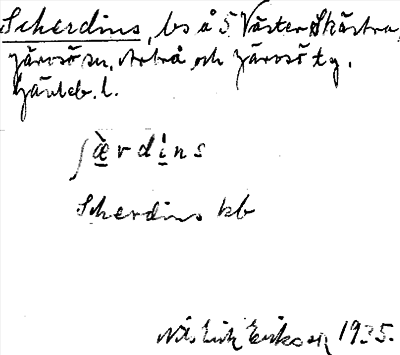 Scherdins, bs å 5 Väster Skästra,
Järvsö sn, Arbrå och Järvsö tg,
Gävleb. l.
ʃæ̀rdins
Scherdins kb
Nils Erik Eriksson 1935.